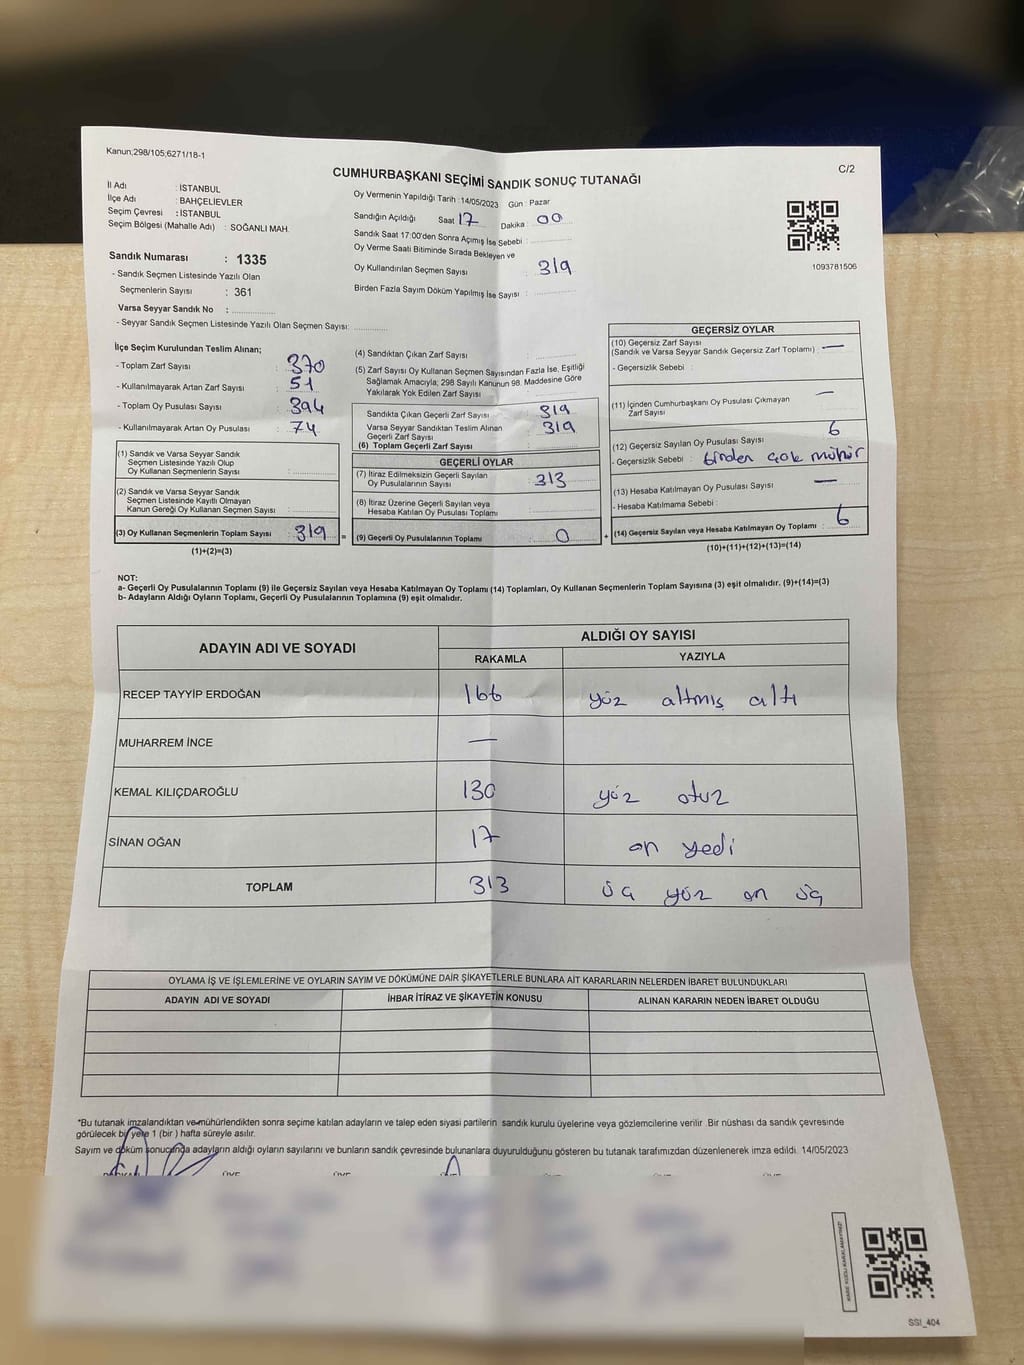 Kanun;298/105;6271/18-1
C/2
CUMHURBAŞKANI SEÇİMİ SANDIK SONUÇ TUTANAĞI
İl Adı : İSTANBUL
İlçe Adı : BAHÇELİEVLER
Seçim Çevresi : İSTANBUL
Seçim Bölgesi (Mahalle Adı) : SOĞANLI MAH.
Sandık Numarası : 1335
- Sandık Seçmen Listesinde Yazılı Olan
Seçmenlerin Sayısı : 361
Varsa Seyyar Sandık No :
- Seyyar Sandık Seçmen Listesinde Yazılı Olan Seçmen Sayısı:
Oy Vermenin Yapıldığı Tarih : 14/05/2023 Gün : Pazar
Sandığın Açıldığı Saat 17 Dakika : 00
Sandık Saat 17:00'den Sonra Açımış İse Sebebi :
Oy Verme Saati Bitiminde Sırada Bekleyen ve
Oy Kullandırılan Seçmen Sayısı : 319
Birden Fazla Sayım Döküm Yapılmış İse Sayısı :
1093781506
İlçe Seçim Kurulundan Teslim Alınan;
- Toplam Zarf Sayısı : 370
- Kullanılmayarak Artan Zarf Sayısı : 51
- Toplam Oy Pusulası Sayısı : 394
- Kullanılmayarak Artan Oy Pusulası : 74
(1) Sandık ve Varsa Seyyar Sandık
Seçmen Listesinde Yazılı Olup
Oy Kullanan Seçmenlerin Sayısı :
(2) Sandık ve Varsa Seyyar Sandık
Seçmen Listesinde Kayıtlı Olmayan
Kanun Gereği Oy Kullanan Seçmen Sayısı :
(3) Oy Kullanan Seçmenlerin Toplam Sayısı : 319
(1)+(2)=(3)
=
(4) Sandıktan Çıkan Zarf Sayısı :
(5) Zarf Sayısı Oy Kullanan Seçmen Sayısından Fazla İse, Eşitliği
Sağlamak Amacıyla; 298 Sayılı Kanunun 98. Maddesine Göre
Yakılarak Yok Edilen Zarf Sayısı :
Sandıkta Çıkan Geçerli Zarf Sayısı : 319
Varsa Seyyar Sandıktan Teslim Alınan : 319
Geçerli Zarf Sayısı
(6) Toplam Geçerli Zarf Sayısı
GEÇERLİ OYLAR
(7) İtiraz Edilmeksizin Geçerli Sayılan
Oy Pusulalarının Sayısı : 313
(8) İtiraz Üzerine Geçerli Sayılan veya
Hesaba Katılan Oy Pusulası Toplamı :
(9) Geçerli Oy Pusulalarının Toplamı : 0
+
GEÇERSİZ OYLAR
(10) Geçersiz Zarf Sayısı
(Sandık ve Varsa Seyyar Sandık Geçersiz Zarf Toplamı) : —
- Geçersizlik Sebebi :
(11) İçinden Cumhurbaşkanı Oy Pusulası Çıkmayan : —
Zarf Sayısı
(12) Geçersiz Sayılan Oy Pusulası Sayısı : 6
- Geçersizlik Sebebi : birden çok mühür
(13) Hesaba Katılmayan Oy Pusulası Sayısı : —
- Hesaba Katılmama Sebebi :
(14) Geçersiz Sayılan veya Hesaba Katılmayan Oy Toplamı : 6
(10)+(11)+(12)+(13)=(14)
NOT:
a- Geçerli Oy Pusulalarının Toplamı (9) ile Geçersiz Sayılan veya Hesaba Katılmayan Oy Toplamı (14) Toplamları, Oy Kullanan Seçmenlerin Toplam Sayısına (3) eşit olmalıdır. (9)+(14)=(3)
b- Adayların Aldığı Oyların Toplamı, Geçerli Oy Pusulalarının Toplamına (9) eşit olmalıdır.
ADAYIN ADI VE SOYADI
ALDIĞI OY SAYISI
RAKAMLA YAZIYLA
RECEP TAYYİP ERDOĞAN 166 yüz altmış altı
MUHARREM İNCE —
KEMAL KILIÇDAROĞLU 130 yüz otuz
SİNAN OĞAN 17 on yedi
TOPLAM 313 üç yüz on üç
OYLAMA İŞ VE İŞLEMLERİNE VE OYLARIN SAYIM VE DÖKÜMÜNE DAİR ŞİKAYETLERLE BUNLARA AİT KARARLARIN NELERDEN İBARET BULUNDUKLARI
ADAYIN ADI VE SOYADI İHBAR İTİRAZ VE ŞİKAYETİN KONUSU ALINAN KARARIN NEDEN İBARET OLDUĞU
*Bu tutanak imzalandıktan ve mühürlendikten sonra seçime katılan adayların ve talep eden siyasi partilerin sandık kurulu üyelerine veya gözlemcilerine verilir .Bir nüshası da sandık çevresinde
görülecek bir yere 1 (bir ) hafta süreyle asılır.
Sayım ve döküm sonucunda adayların aldığı oyların sayılarını ve bunların sandık çevresinde bulunanlara duyurulduğunu gösteren bu tutanak tarafımızdan düzenlenerek imza edildi. 14/05/2023
SSI_404